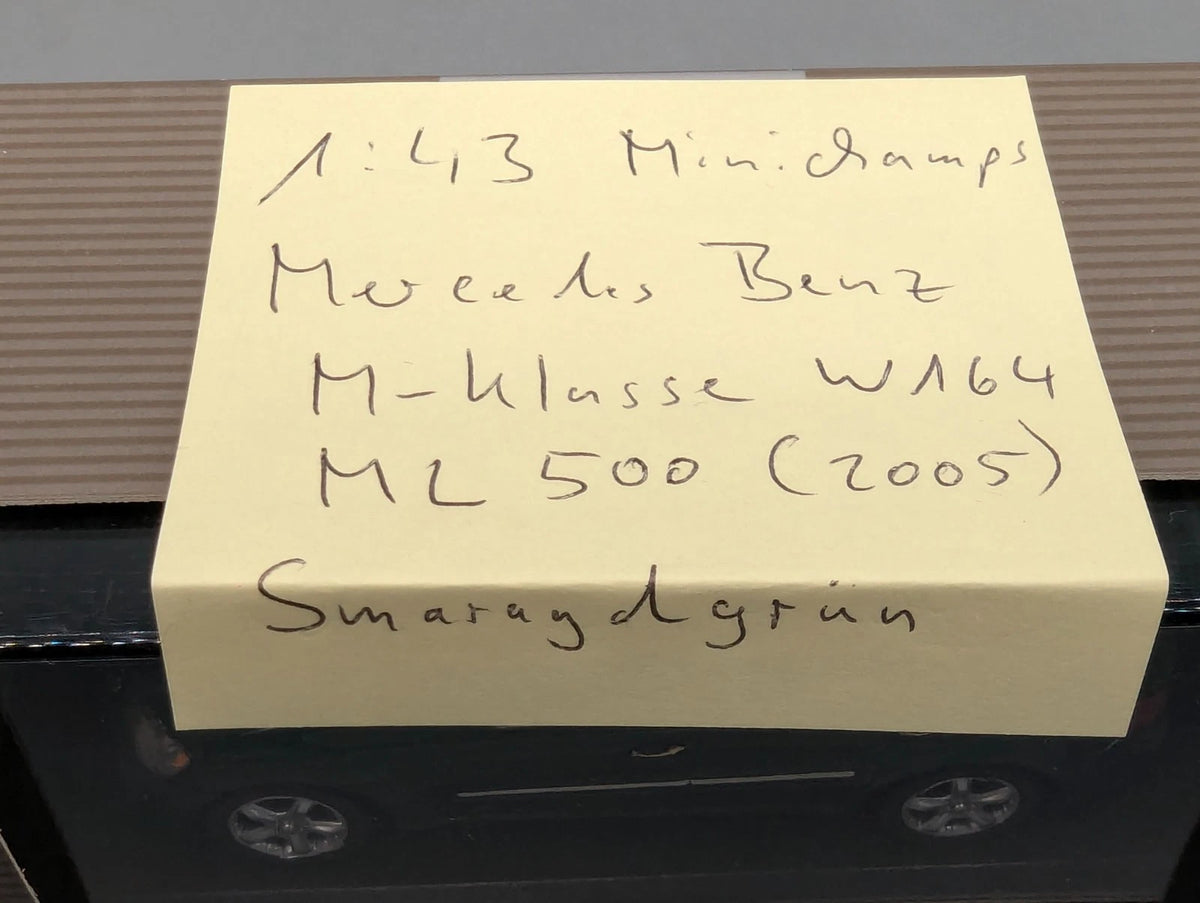 1:43 Minichamps
Mercedes Benz
M-Klasse W164
ML 500 (2005)
Smaragdgrün